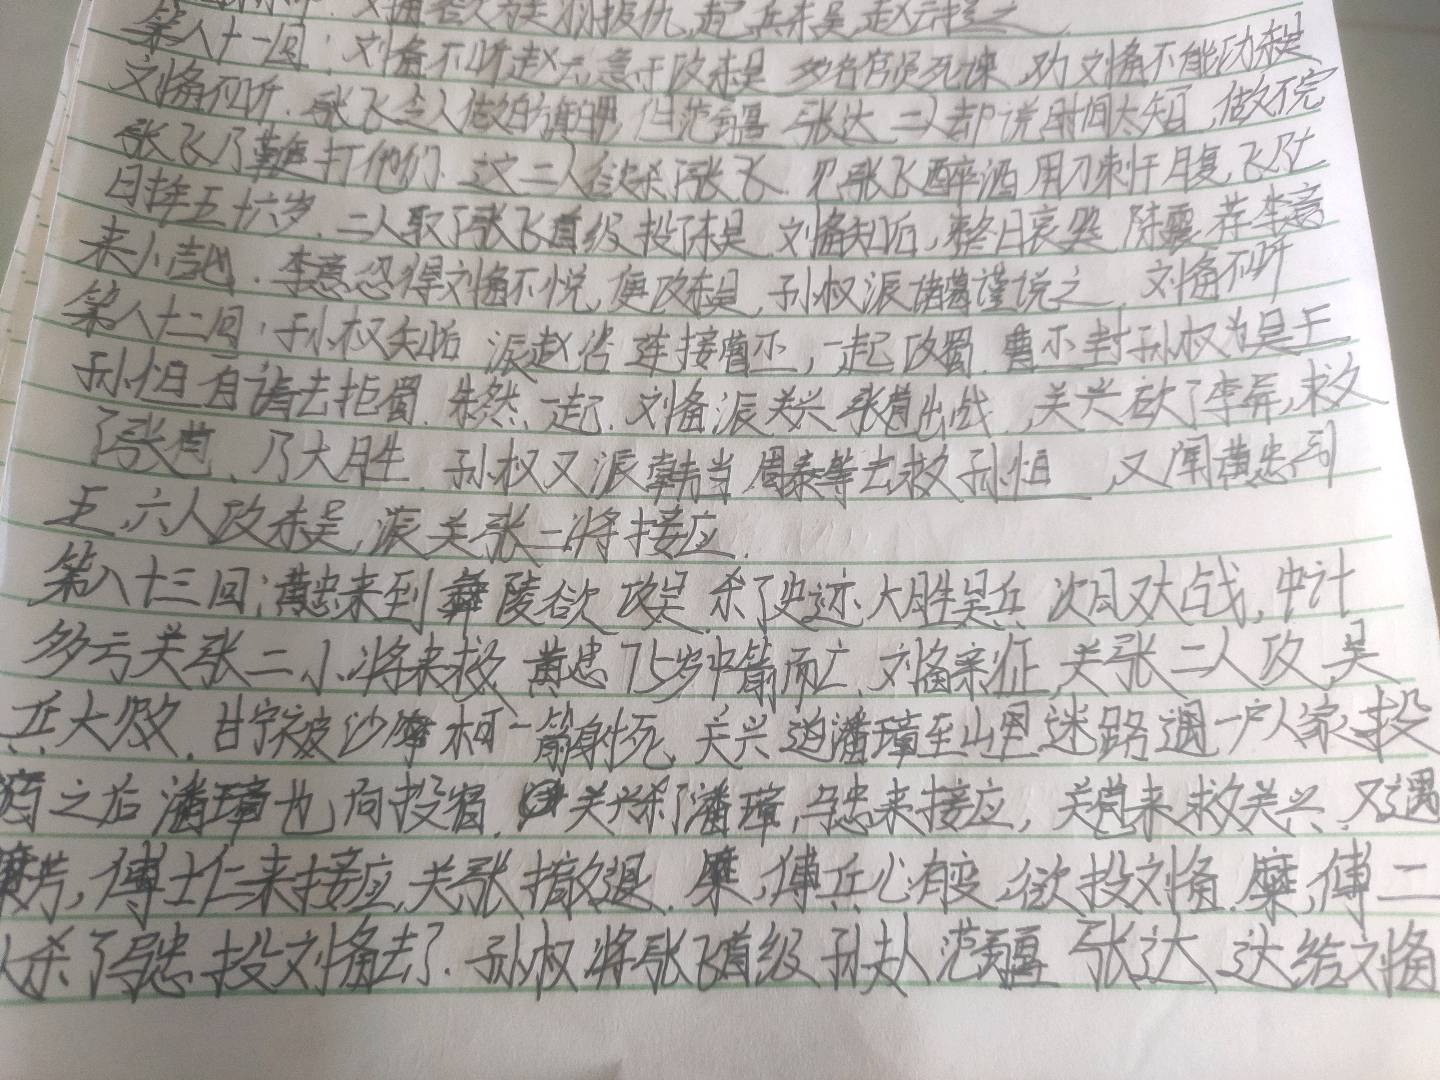 刘备欲为关羽报仇,起兵东吴,赵云接之
第八十一回:刘备不听赵云急于攻东吴 多名官员死谏,劝刘备不能攻东吴
刘备不听.张飞令人做白旗白甲,但范疆 张达二人却说时间太短,做不完
张飞乃鞭打他们.这二人欲杀张飞.见张飞醉酒用刀刺于腹,飞亡
日年五十六岁.二人取了张飞首级投东吴.刘备知后,整日哀哭 陈震荐李意
来 .李意恐得刘备不悦,便攻东吴.孙权派诸葛谨说之,刘备不听
第八十二回:孙权知后 派赵咨连接曹丕,一起攻蜀.曹丕封孙权为吴王
孙恒自请去拒蜀.朱然一起.刘备派关兴 张苞出战,关兴砍了李异,救
了张苞.乃大胜.孙权又派韩当 周泰等去救孙恒,又闻黄忠引
五,六人攻东吴,派关张二将接应.
第八十三回:黄忠来到彝陵欲攻吴.杀了史迹.大胜吴兵 次日又大战,中计
多亏关张二小将来救 黄忠75岁中箭而亡.刘备亲征,关张二人攻,吴
兵大败.甘宁被沙摩柯一箭射死.关兴追潘璋至山里迷路遇一户人家投
宿之后潘璋也向投宿.关兴杀了潘璋,马忠来接应,关苞来救关兴.又遇
糜芳,傅士仁来接应,关张撤退.糜,傅兵心有变,欲投刘备.糜,傅二
人杀了马忠投刘备去了.孙权将张飞首级 孙夫人 范疆 张达 送给刘备